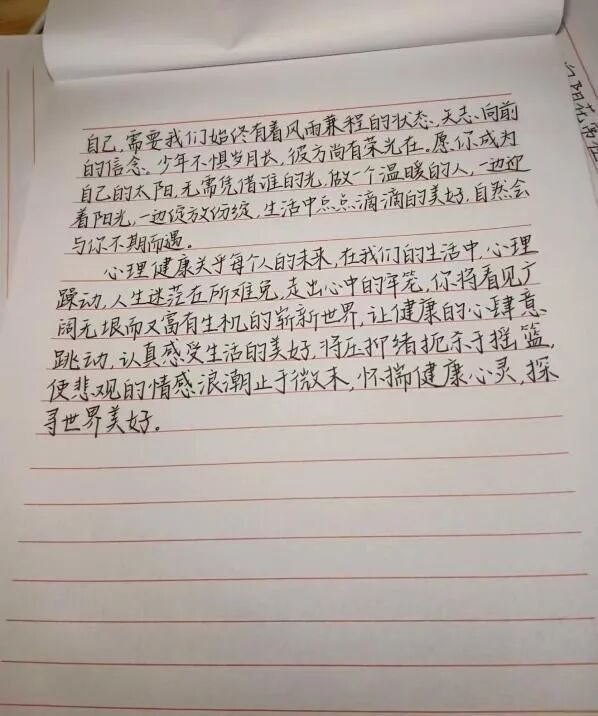 自己,需要我们始终有着风雨兼程的状态,矢志向前
的信念。少年不惧岁月长,彼方尚有荣光在。愿你成为
自己的太阳,无需凭借谁的光,做一个温暖的人,一边迎
着阳光,一边绽放份绽,生活中点点滴滴的美好,自然会
与你不期而遇。
心理健康关乎每个人的未来,在我们的生活中,心理
躁动,人生迷茫在所难免,走出心中的牢笼,你将看见广
阔无垠而又富有生机的崭新世界,让健康的心肆意
跳动,认真感受生活的美好,将压抑绪扼杀于摇篮,
使悲观的情感浪潮止于微末,怀揣健康心灵,探
寻世界美好。